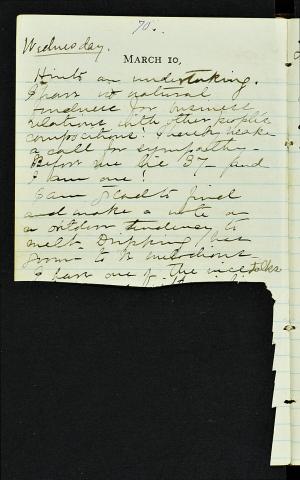 70.
Wednesday.
MARCH 10,
Hints an undertaking.
I have no natural
fondness for business
relations with other people's
compositions! I hereby make
a call for sympathy -
Before me lie 37 - and
I am one!
I am glad to find
and make a note on
a outdoor tendency to
melt. Dripping has
grown to be melodious.
I have one of the nicest talks